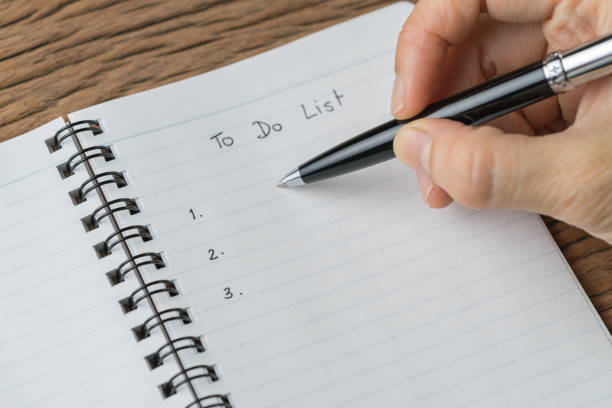 To Do List
1.
2.
3.